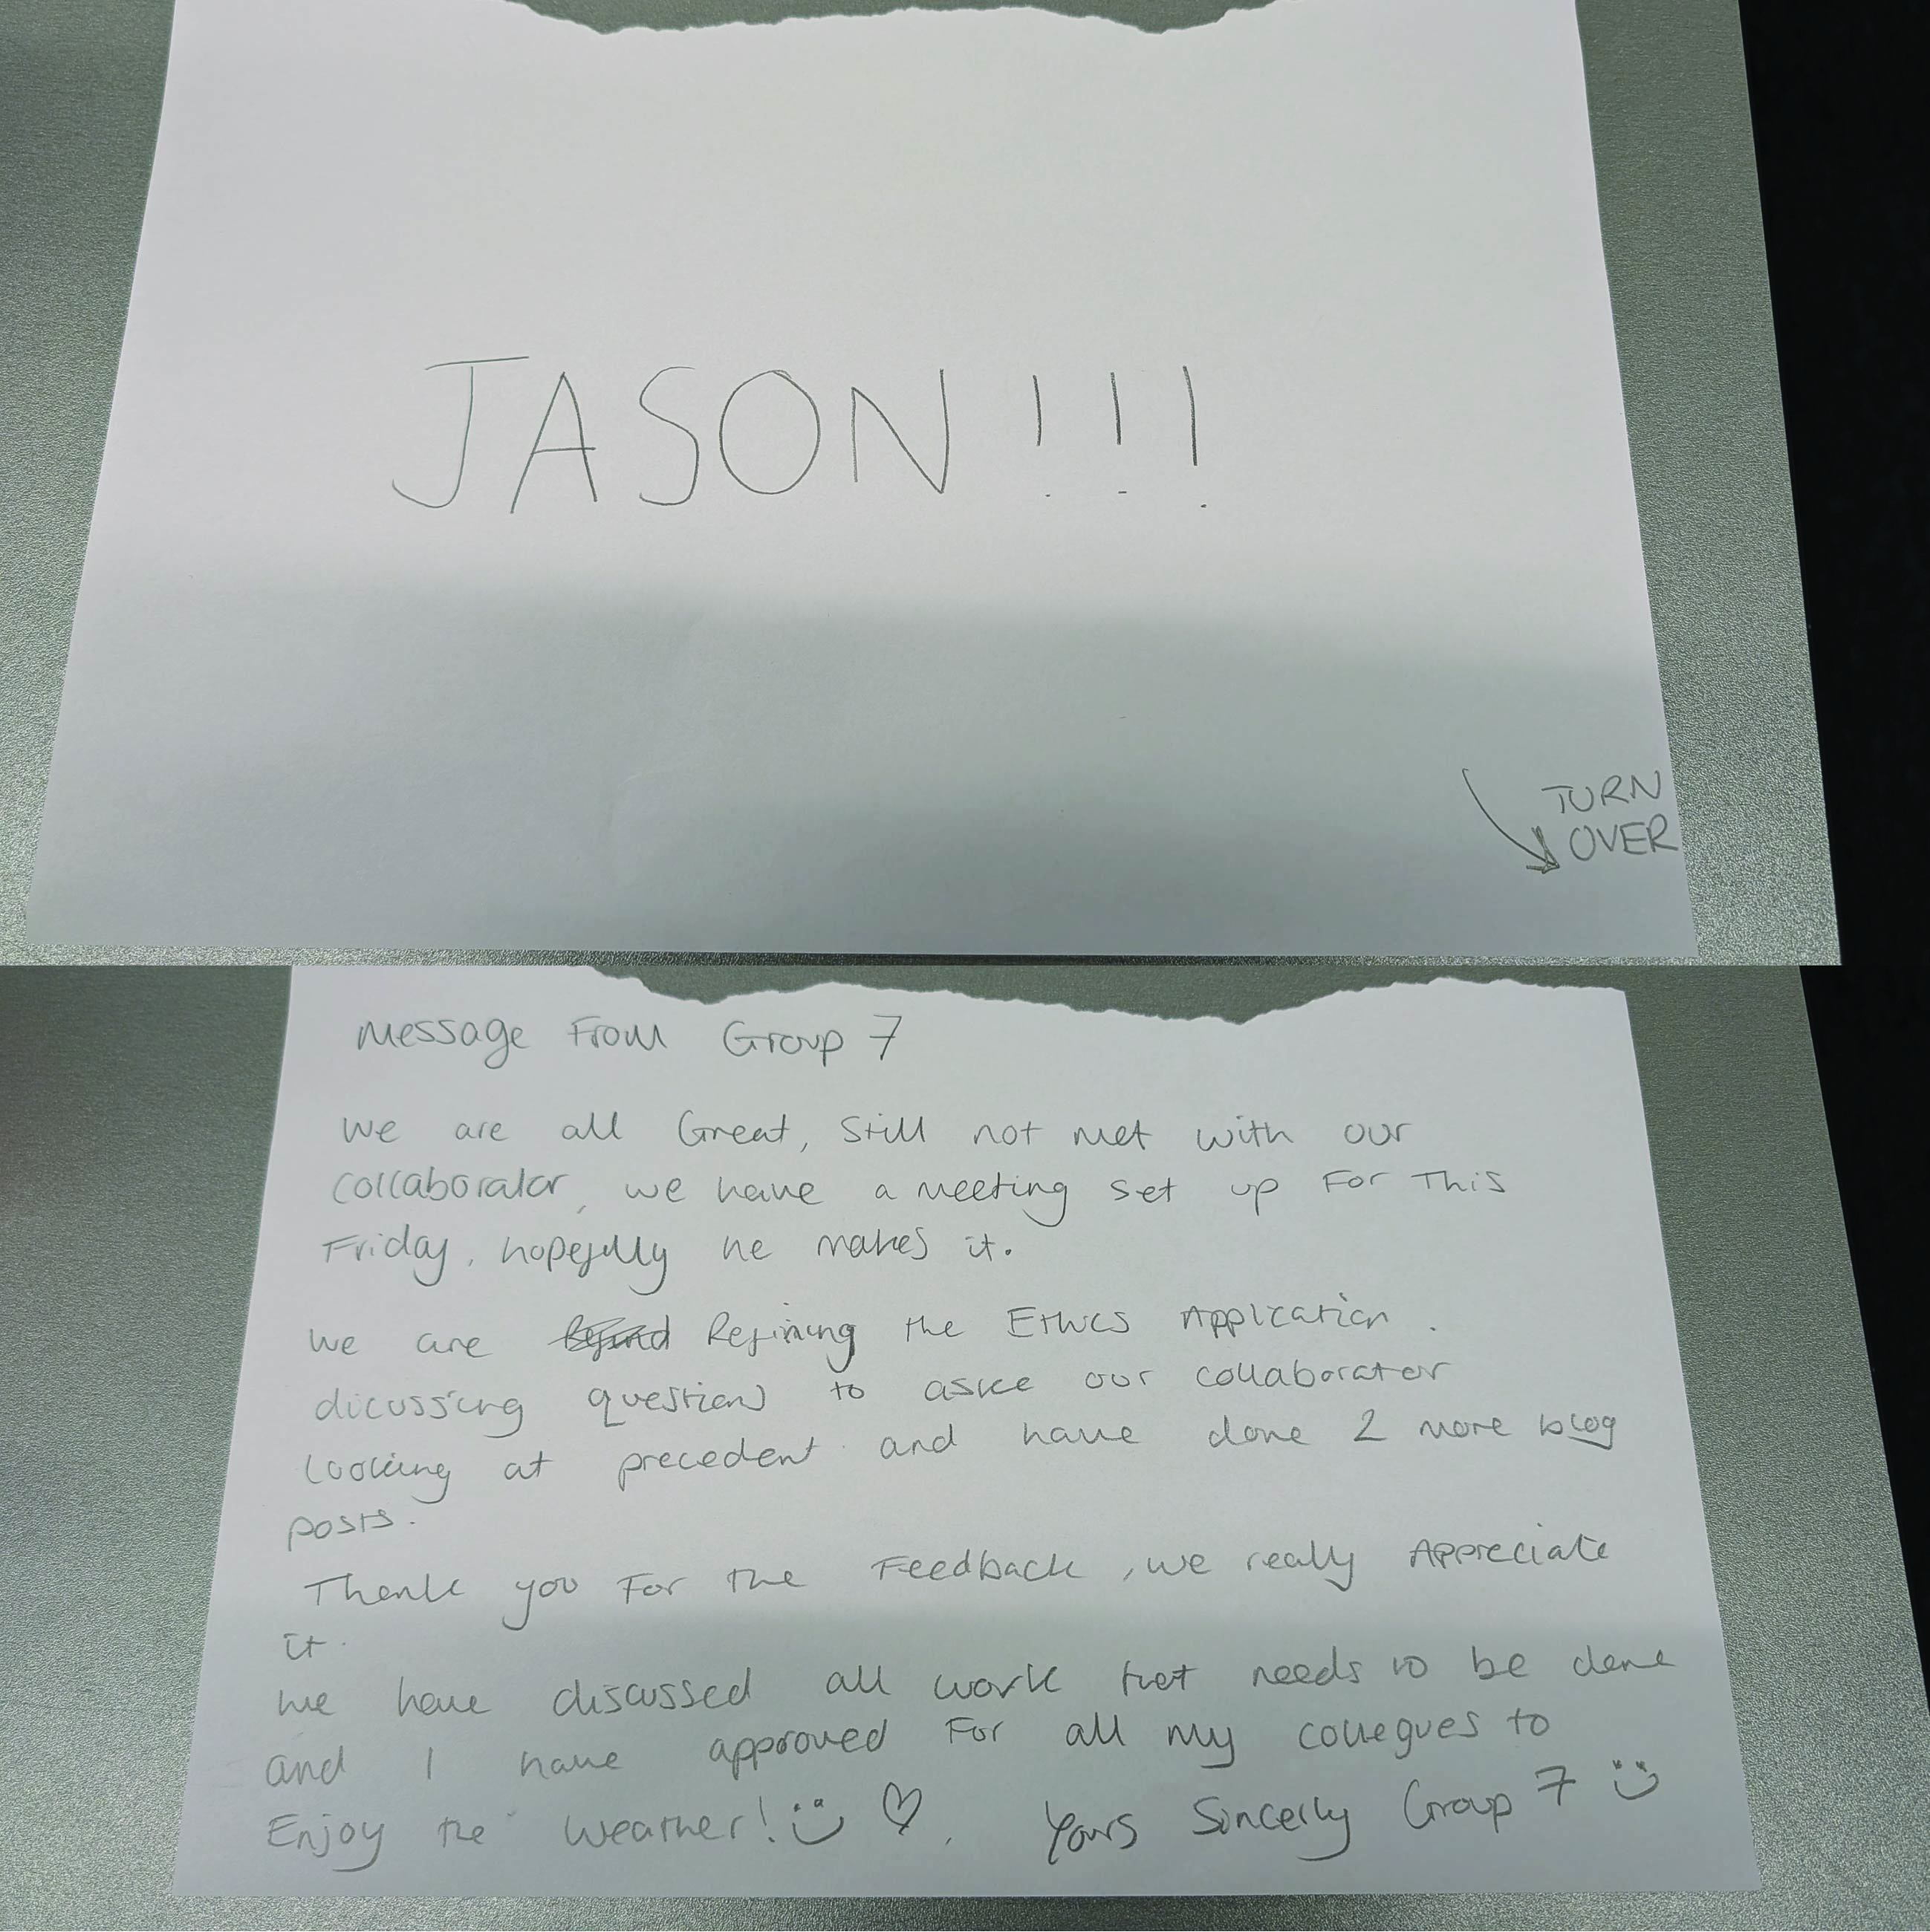 JASON!!!
TURN
OVER
Message From Group 7
We are all Great, Still not met with our
collaborator, we have a meeting set up For This
Friday, hopefully he makes it.
We are Refining the Ethics Application.
dicussing questions to aske our collaborator
looking at precedent and have done 2 more blog
posts.
Thank you For the Feedback, we really Appreciate
it.
we have discussed all work that needs to be done
and I have approved For all my collegues to
Enjoy the Weather! Yours Sincerly Group 7